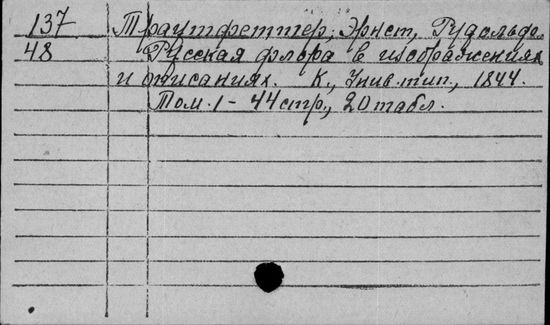 137 Траутфеттер, Эрнст, Рудольф.
48 Русская флора в изображениях
и описаниях. К., Унив. тип., 1844.
Том. 1 - 44 стр., 20 табл.